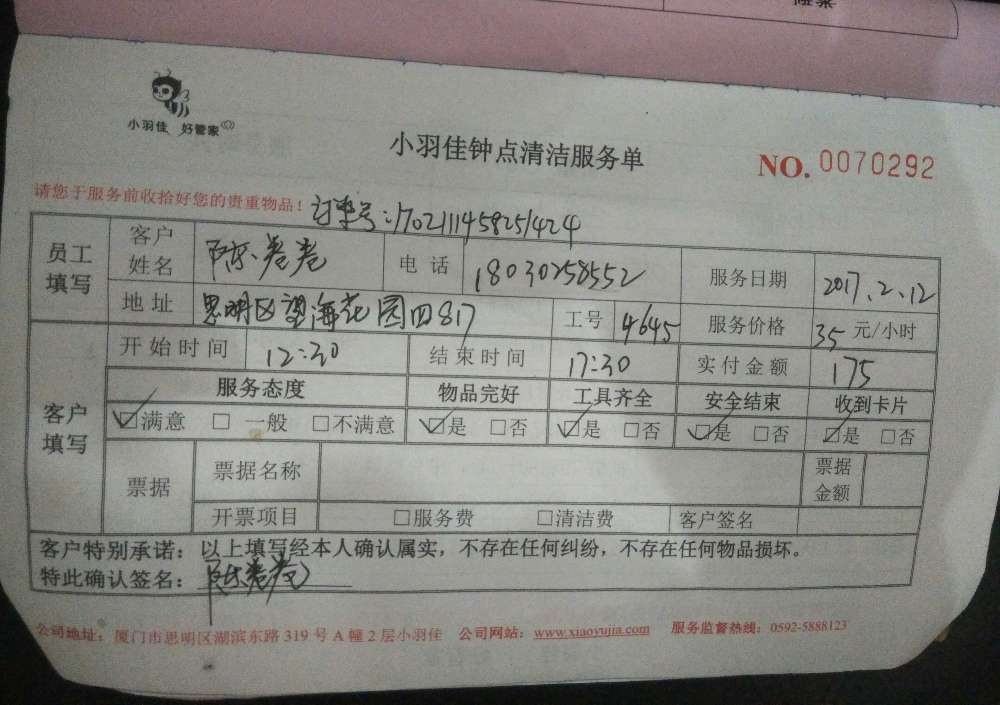 小羽佳 好管家
小羽佳钟点清洁服务单
NO. 0070292
请您于服务前收拾好您的贵重物品！ 订单号:1702111458251424
员工填写 客户姓名 陈卷卷 电话 18030258552 服务日期 2017.2.12
地址 思明区望海花园四817 工号 4645 服务价格 35 元/小时
客户填写 开始时间 12:30 结束时间 17:30 实付金额 175
服务态度 物品完好 工具齐全 安全结束 收到卡片
☑满意 □ 一般 □不满意 ☑是 □否 ☑是 □否 ☑是 □否 ☑是 □否
票据 票据名称 票据金额
开票项目 □服务费 □清洁费 客户签名
客户特别承诺：以上填写经本人确认属实，不存在任何纠纷，不存在任何物品损坏。
特此确认签名：陈卷卷
公司地址：厦门市思明区湖滨东路 319 号 A 幢 2 层小羽佳 公司网站：www.xiaoyujia.com 服务监督热线：0592-5888123